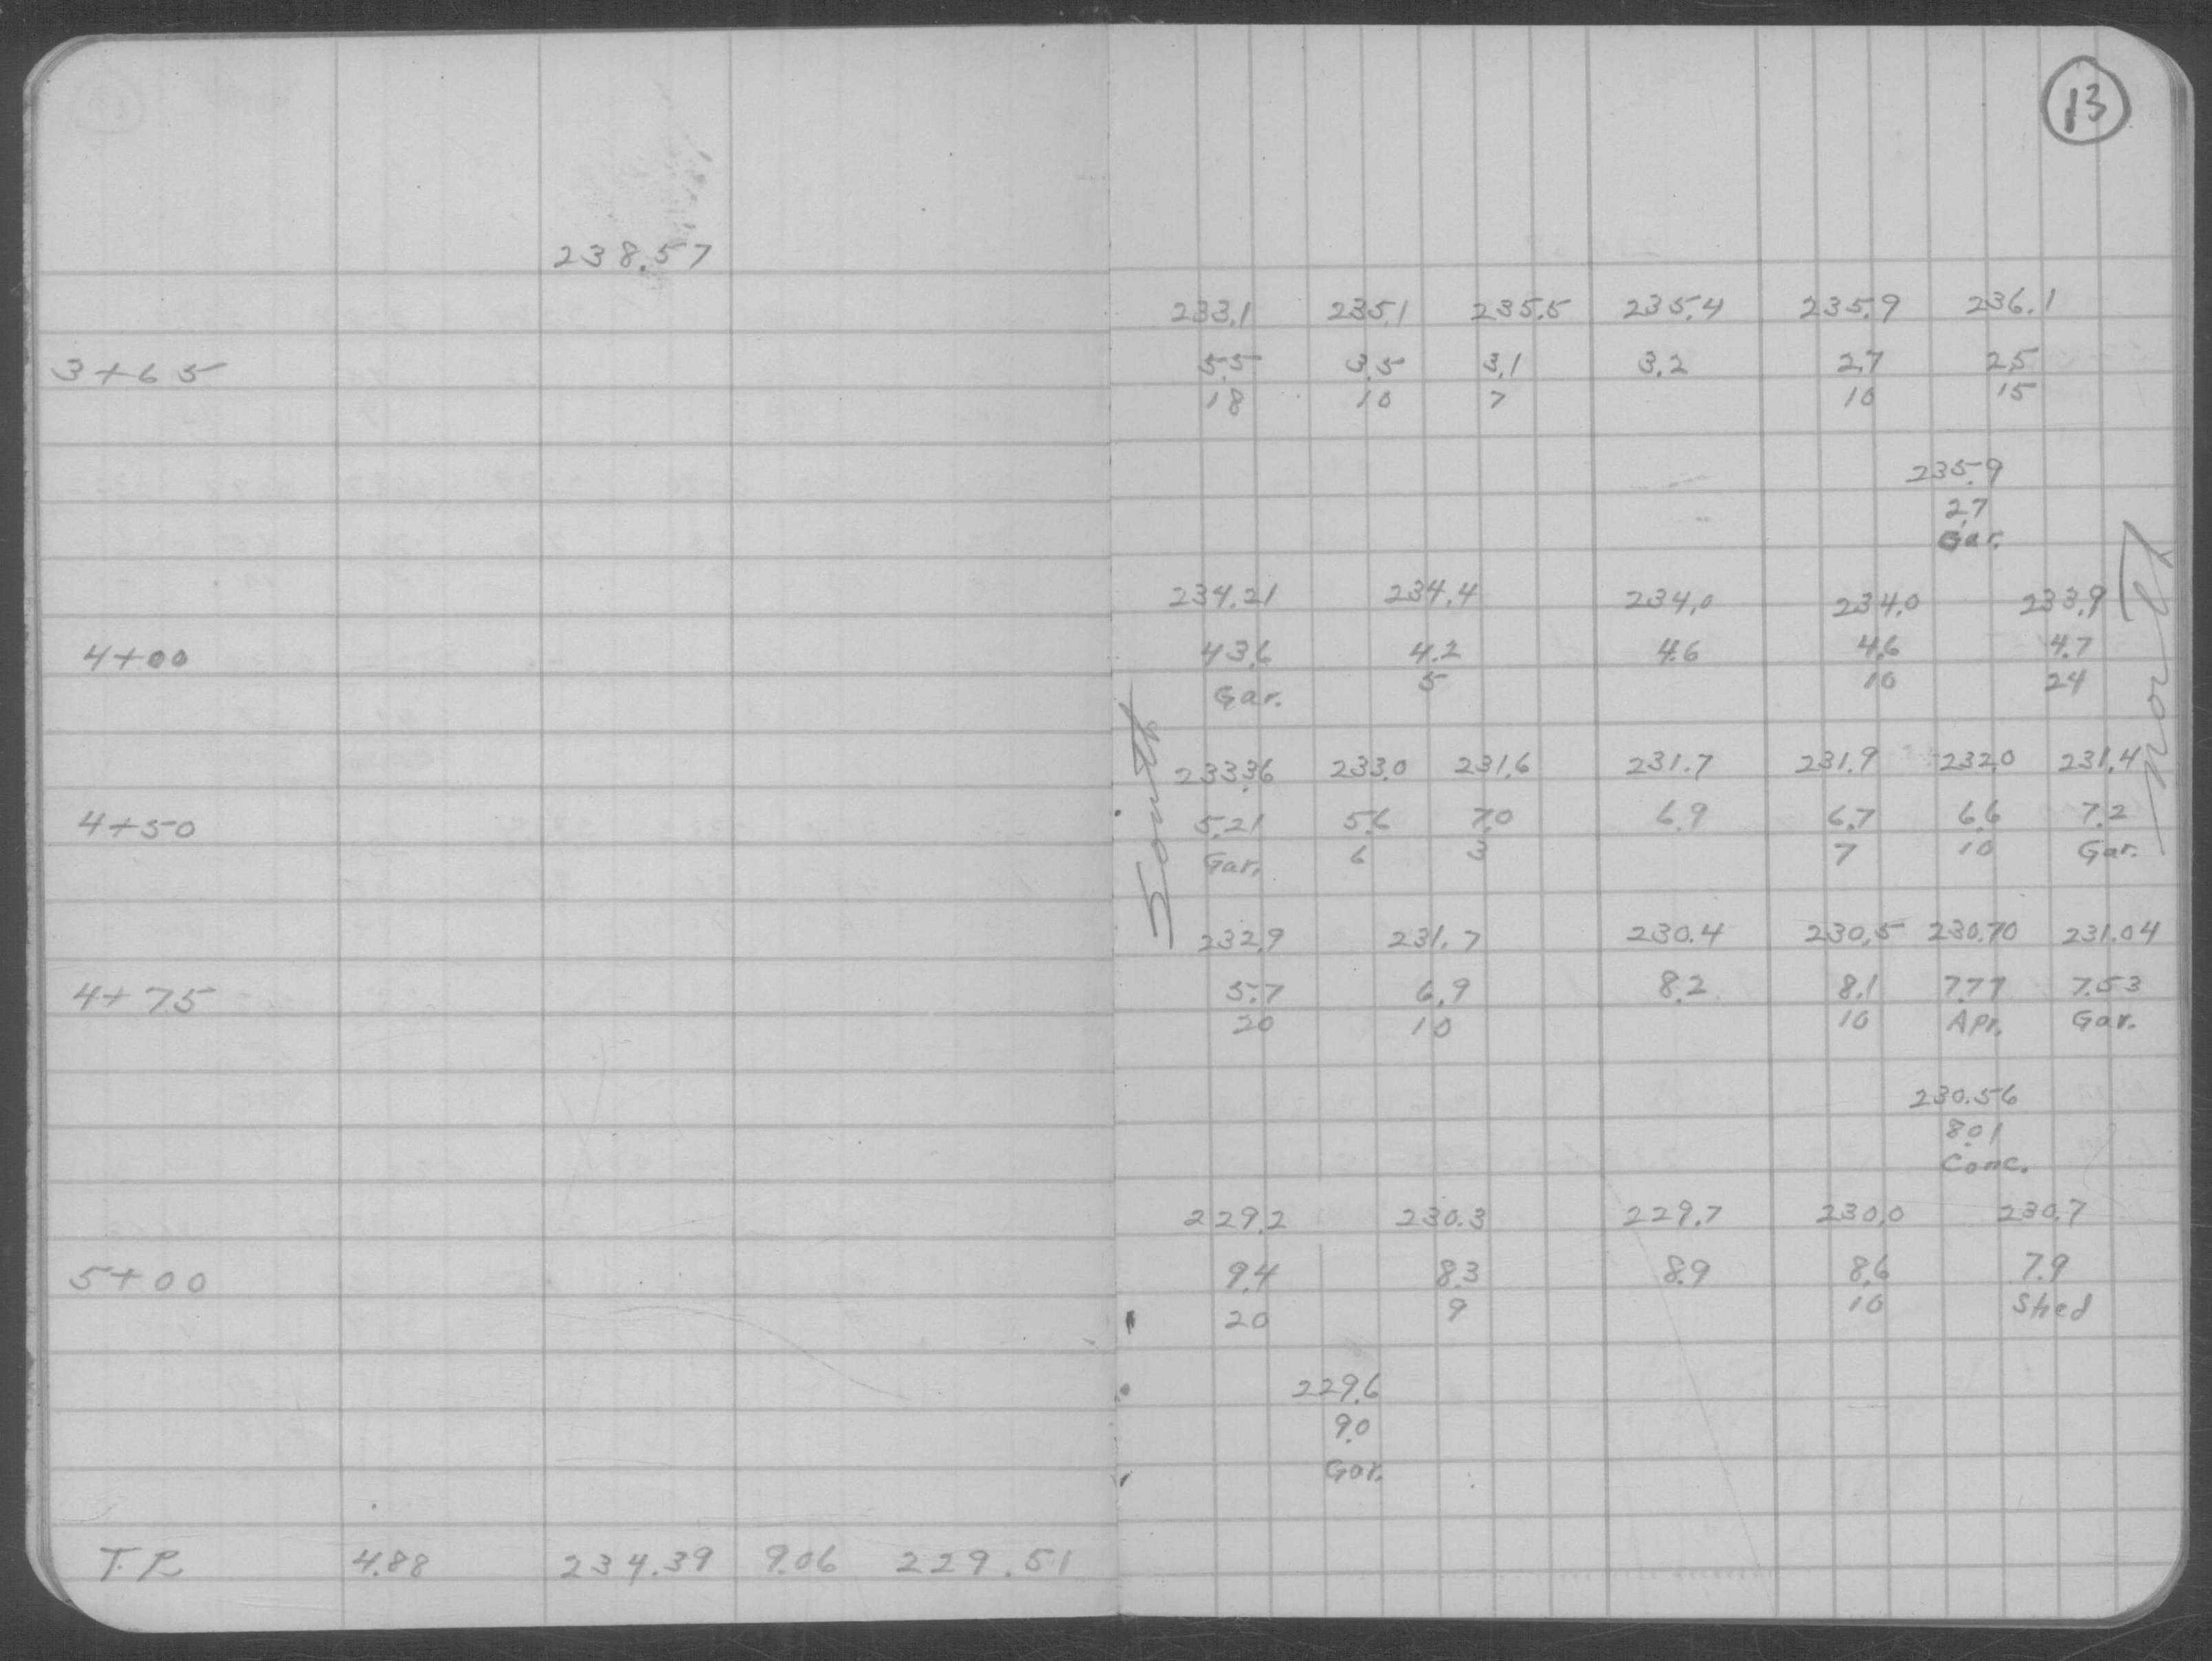 13
238.57
233.1 235.1 235.5 235.4 235.9 236.1
3+65 5.5 3.5 3.1 3.2 2.7 2.5
18 10 7 10 15
235.9
2.7
Gar.
234.21 234.4 234.0 234.0 233.9
4+00 4.36 4.2 4.6 4.6 4.7
Gar. 5 10 24
North
South
233.36 233.0 231.6 231.7 231.9 232.0 231.4
4+50 5.21 5.6 7.0 6.9 6.7 6.6 7.2
Gar. 6 3 7 10 Gar.
232.9 231.7 230.4 230.5 230.70 231.04
4+75 5.7 6.9 8.2 8.1 7.77 7.53
20 10 10 Apr. Gar.
230.56
8.01
Conc.
229.2 230.3 229.7 230.0 230.7
5+00 9.4 8.3 8.9 8.6 7.9
20 9 10 Shed
229.6
9.0
Gar.
T.P. 4.88 234.39 9.06 229.51